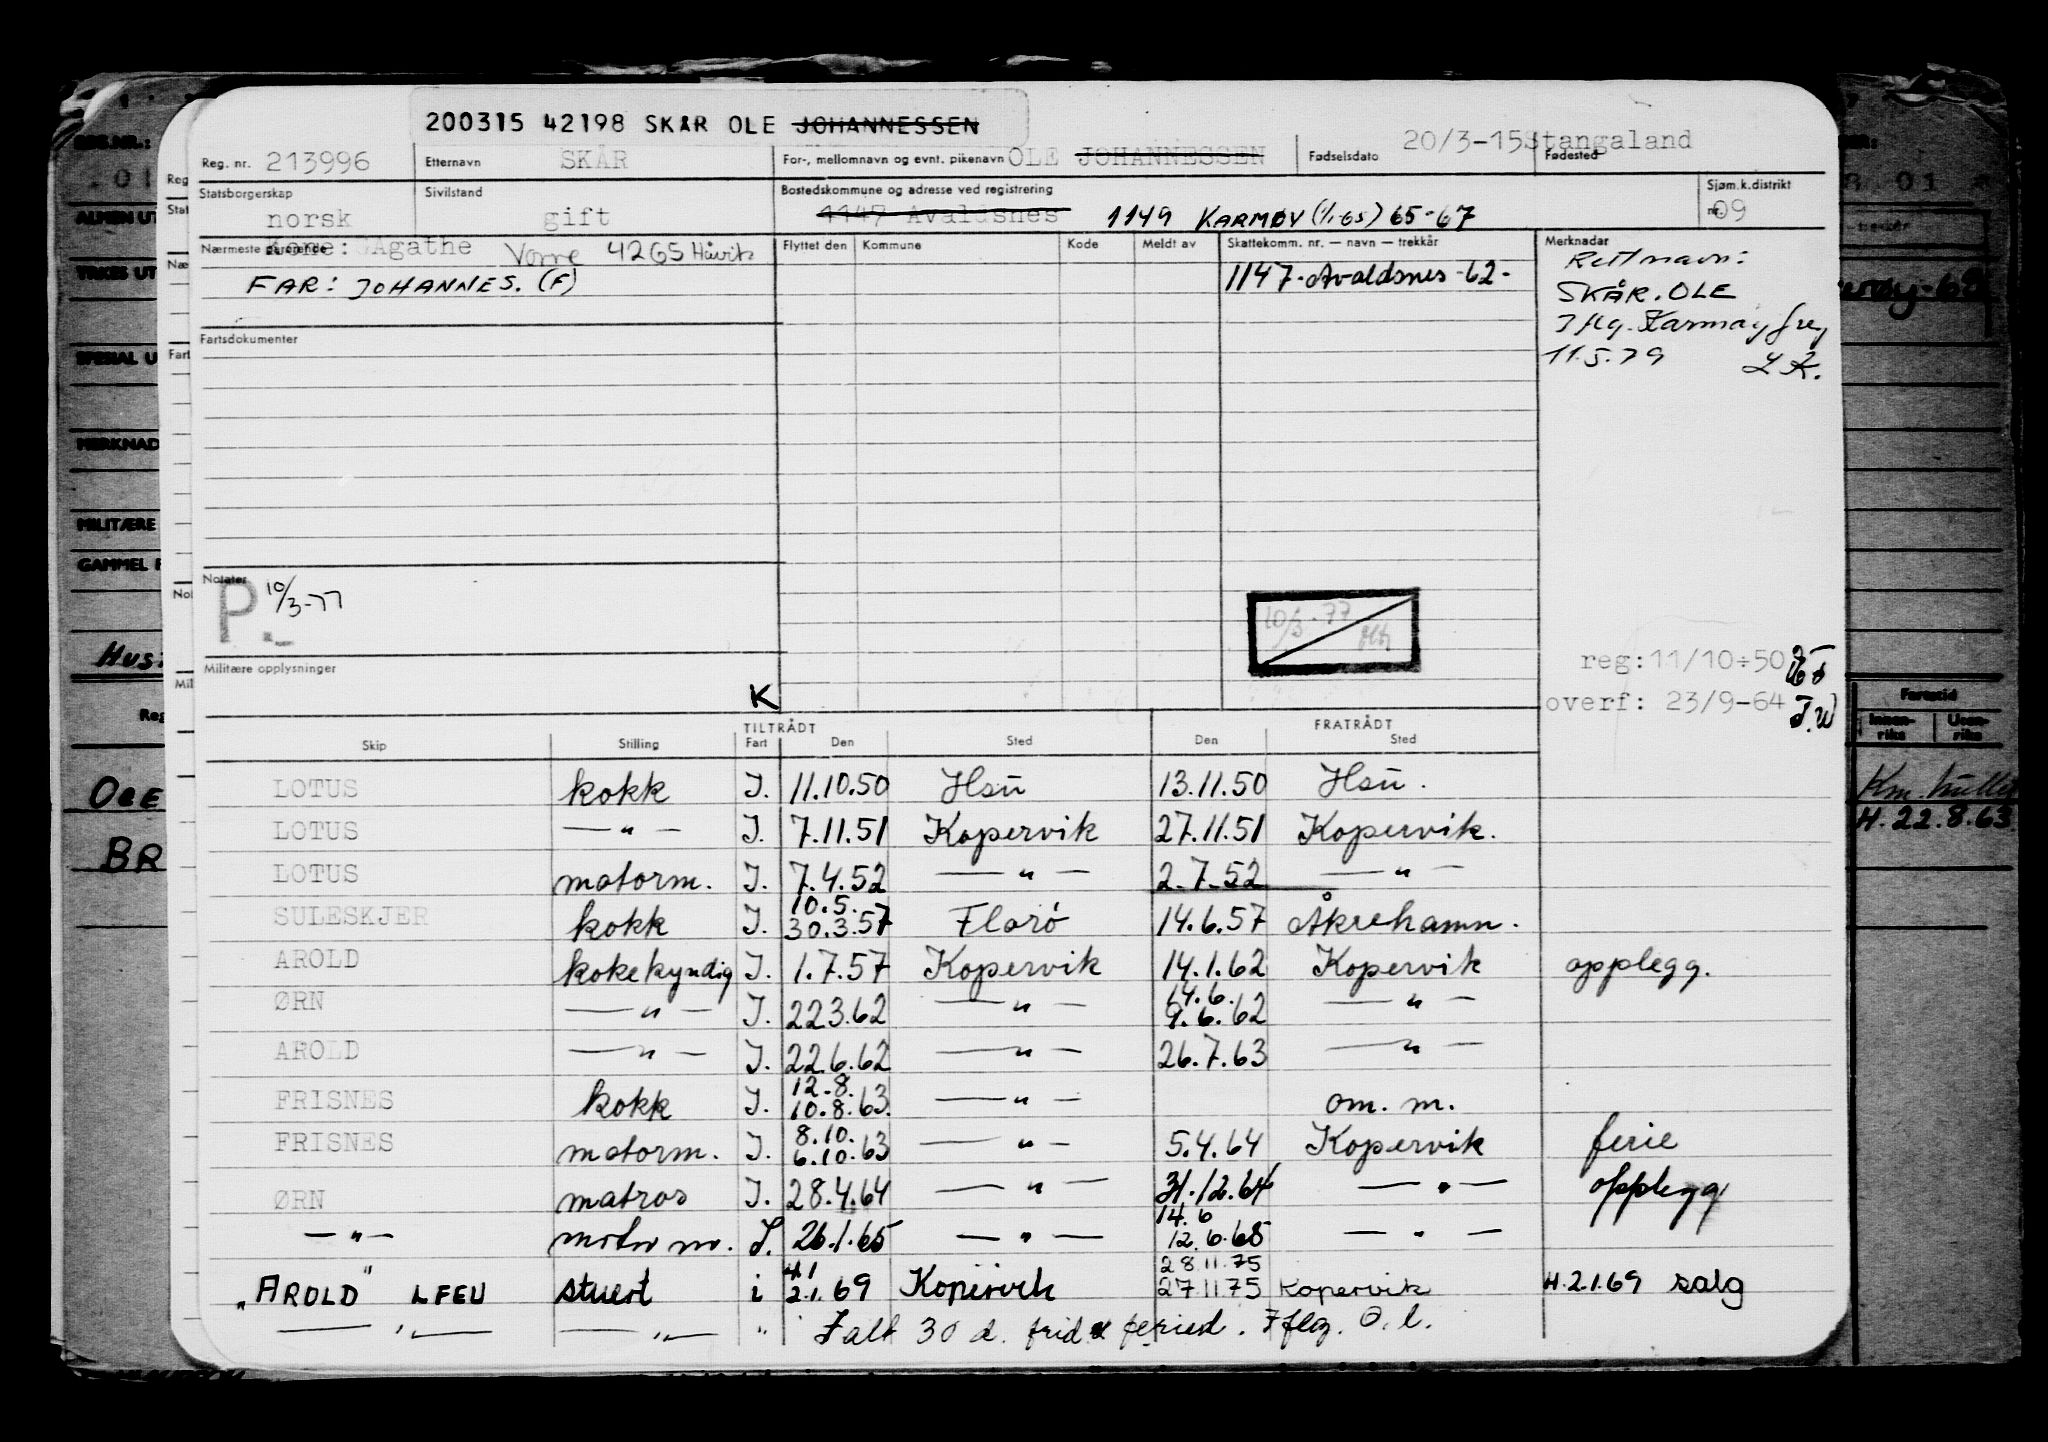 200315 42198 SKÅR OLE JOHANNESSEN
Reg. nr. 213996 Etternavn SKÅR For-, mellomnavn og evnt. pikenavn OLE JOHANNESSEN Fødselsdato 20/3-15 Fødested Stangaland
Statsborgerskap norsk Sivilstand gift Bostedskommune og adresse ved registrering 1147 Avaldsnes 1149 KARMØY (1/1-65) 65-67 Sjøm.k.distrikt nr. 09
Nærmeste pårørende Kone: Agathe Vorre 4265 Håvik Flyttet den Kommune Kode Meldt av Skattekomm. nr. — navn — trekkår Merknader
FAR: JOHANNES. (F) 1147-Avaldsnes-62- Rett navn:
SKÅR. OLE
Iflg. Karmøy freg
Fartsdokumenter 11.5.79
Notater
P. 10/3-77 10/3-77
Militære opplysninger reg: 11/10÷50
K overf: 23/9-64 T.W
TILTRÅDT FRATRÅDT
Skip Stilling Fart Den Sted Den Sted
LOTUS kokk I. 11.10.50 Hsu 13.11.50 Hsu.
LOTUS — " — I. 7.11.51 Kopervik 27.11.51 Kopervik.
LOTUS motorm. I. 7.4.52 — " — 2-7-52 — " —
SULESKJER kokk I. 10.5. 30.3.57 Florø 14.6.57 Åkrehamn.
AROLD kokekyndig I. 1.7.57 Kopervik 14.1.62 Kopervik opplegg.
ØRN — " — I. 22.3.62 — " — 14.6. 9.6.62 — " —
AROLD — " — I. 22.6.62 — " — 26.7.63 — " —
FRISNES kokk I. 12.8. 10.8.63. — " — om. m.
FRISNES motorm. I. 8.10. 6.10.63 — " — 5.4.64 Kopervik ferie
ØRN matros I. 28.4.64 — " — 31.12.64 — " — opplegg
— " — motorm. I. 26.1.65 — " — 14.6 12.6.65 — " —
"AROLD" LFEU stuert i 4.1 2.1.69 Kopervik 28.11.75 27.11.75 Kopervik H.2.1.69 salg
— " — — " — " I alt 30 d. frid. & feried. Iflg. O.l.